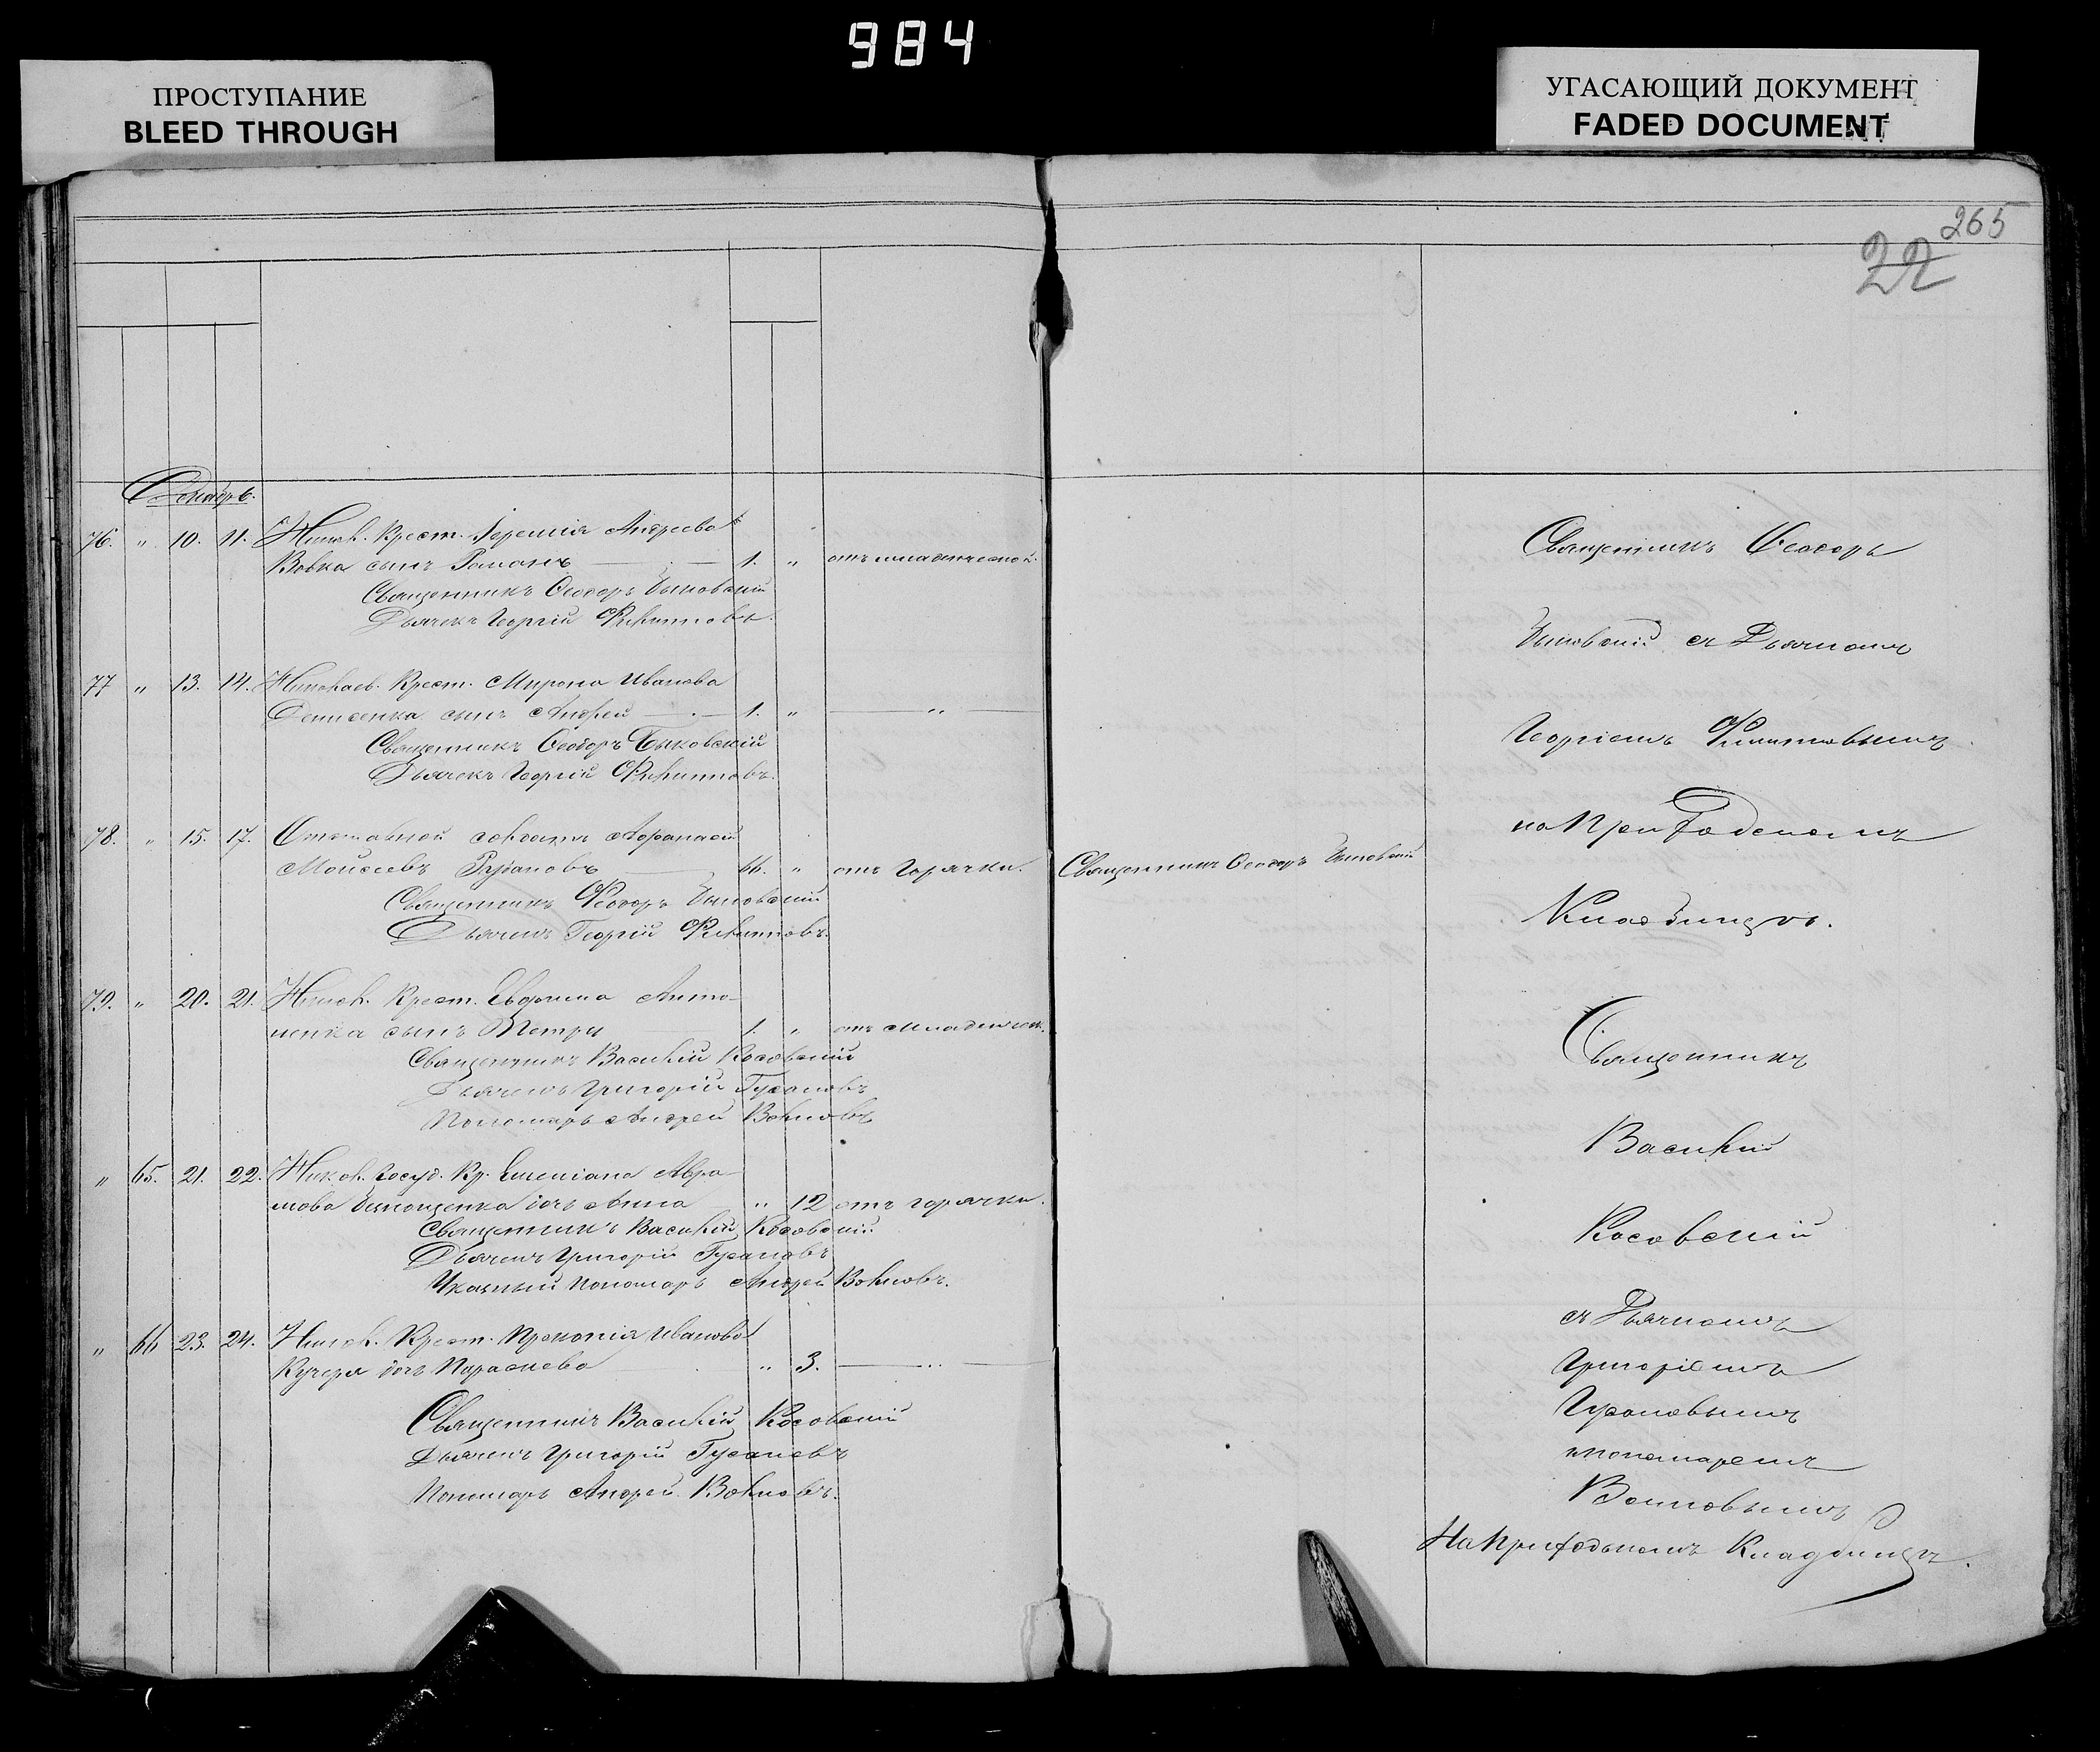 984
ПРОСТУПАНИЕ
BLEED THROUGH
УГАСАЮЩИЙ ДОКУМЕНТ
FADED DOCUMENT
265
22
76. " 10. 11. Никол. Крест. Іеремія Андреева
Вовка сынъ Романъ 1. " отъ младенческой.
Священникъ Ѳеодоръ Быковскій
Дьячекъ Георгій Филипповъ.
77 " 13. 14. Николаев. Крест. Мирона Иванова
Денисенка сынъ Андрей 1. " "
Священникъ Ѳеодоръ Быковскій
Дьячекъ Георгій Филипповъ.
78. " 15. 17. Отставной солдатъ Аѳанасій
Моисеевъ 66. " отъ горячки. Священникъ Ѳеодоръ Быковскій
Священникъ Феодоръ Быковскій
Дьячекъ Георгій Филипповъ.
79. " 20. 21. Никол. Крест. Евфима Анто-
ненка сынъ Петръ 1. " отъ младенческ.
Священникъ Василій Косовскій
Дьячекъ Григорій Гусаковъ
Пономарь Андрей Волковъ
" 65. 21. 22. Никол. Госуд. Кр. Емеліана Авра-
мова дочь Анна " 12 отъ горячки.
Священникъ Василій Косовскій
Дьячекъ Григорій Гусаковъ
Указный Пономарь Андрей Волковъ.
" 66 23. 24. Никол. Крест. Прокопія Иванова
Кучера дочь Параскева " 3. "
Священникъ Василій Косовскій
Дьячекъ Григорій Гусаковъ
Пономарь Андрей Волковъ.
Священникъ Ѳеодоръ
Быковскій съ Дьячкомъ
Георгіемъ Филипповымъ
на Приходскомъ
Кладбищѣ.
Священникъ
Василій
Косовскій
съ Дьячкомъ
Григоріемъ
Гусаковымъ
и пономаремъ
Волковымъ
На Приходскомъ Кладбищѣ.